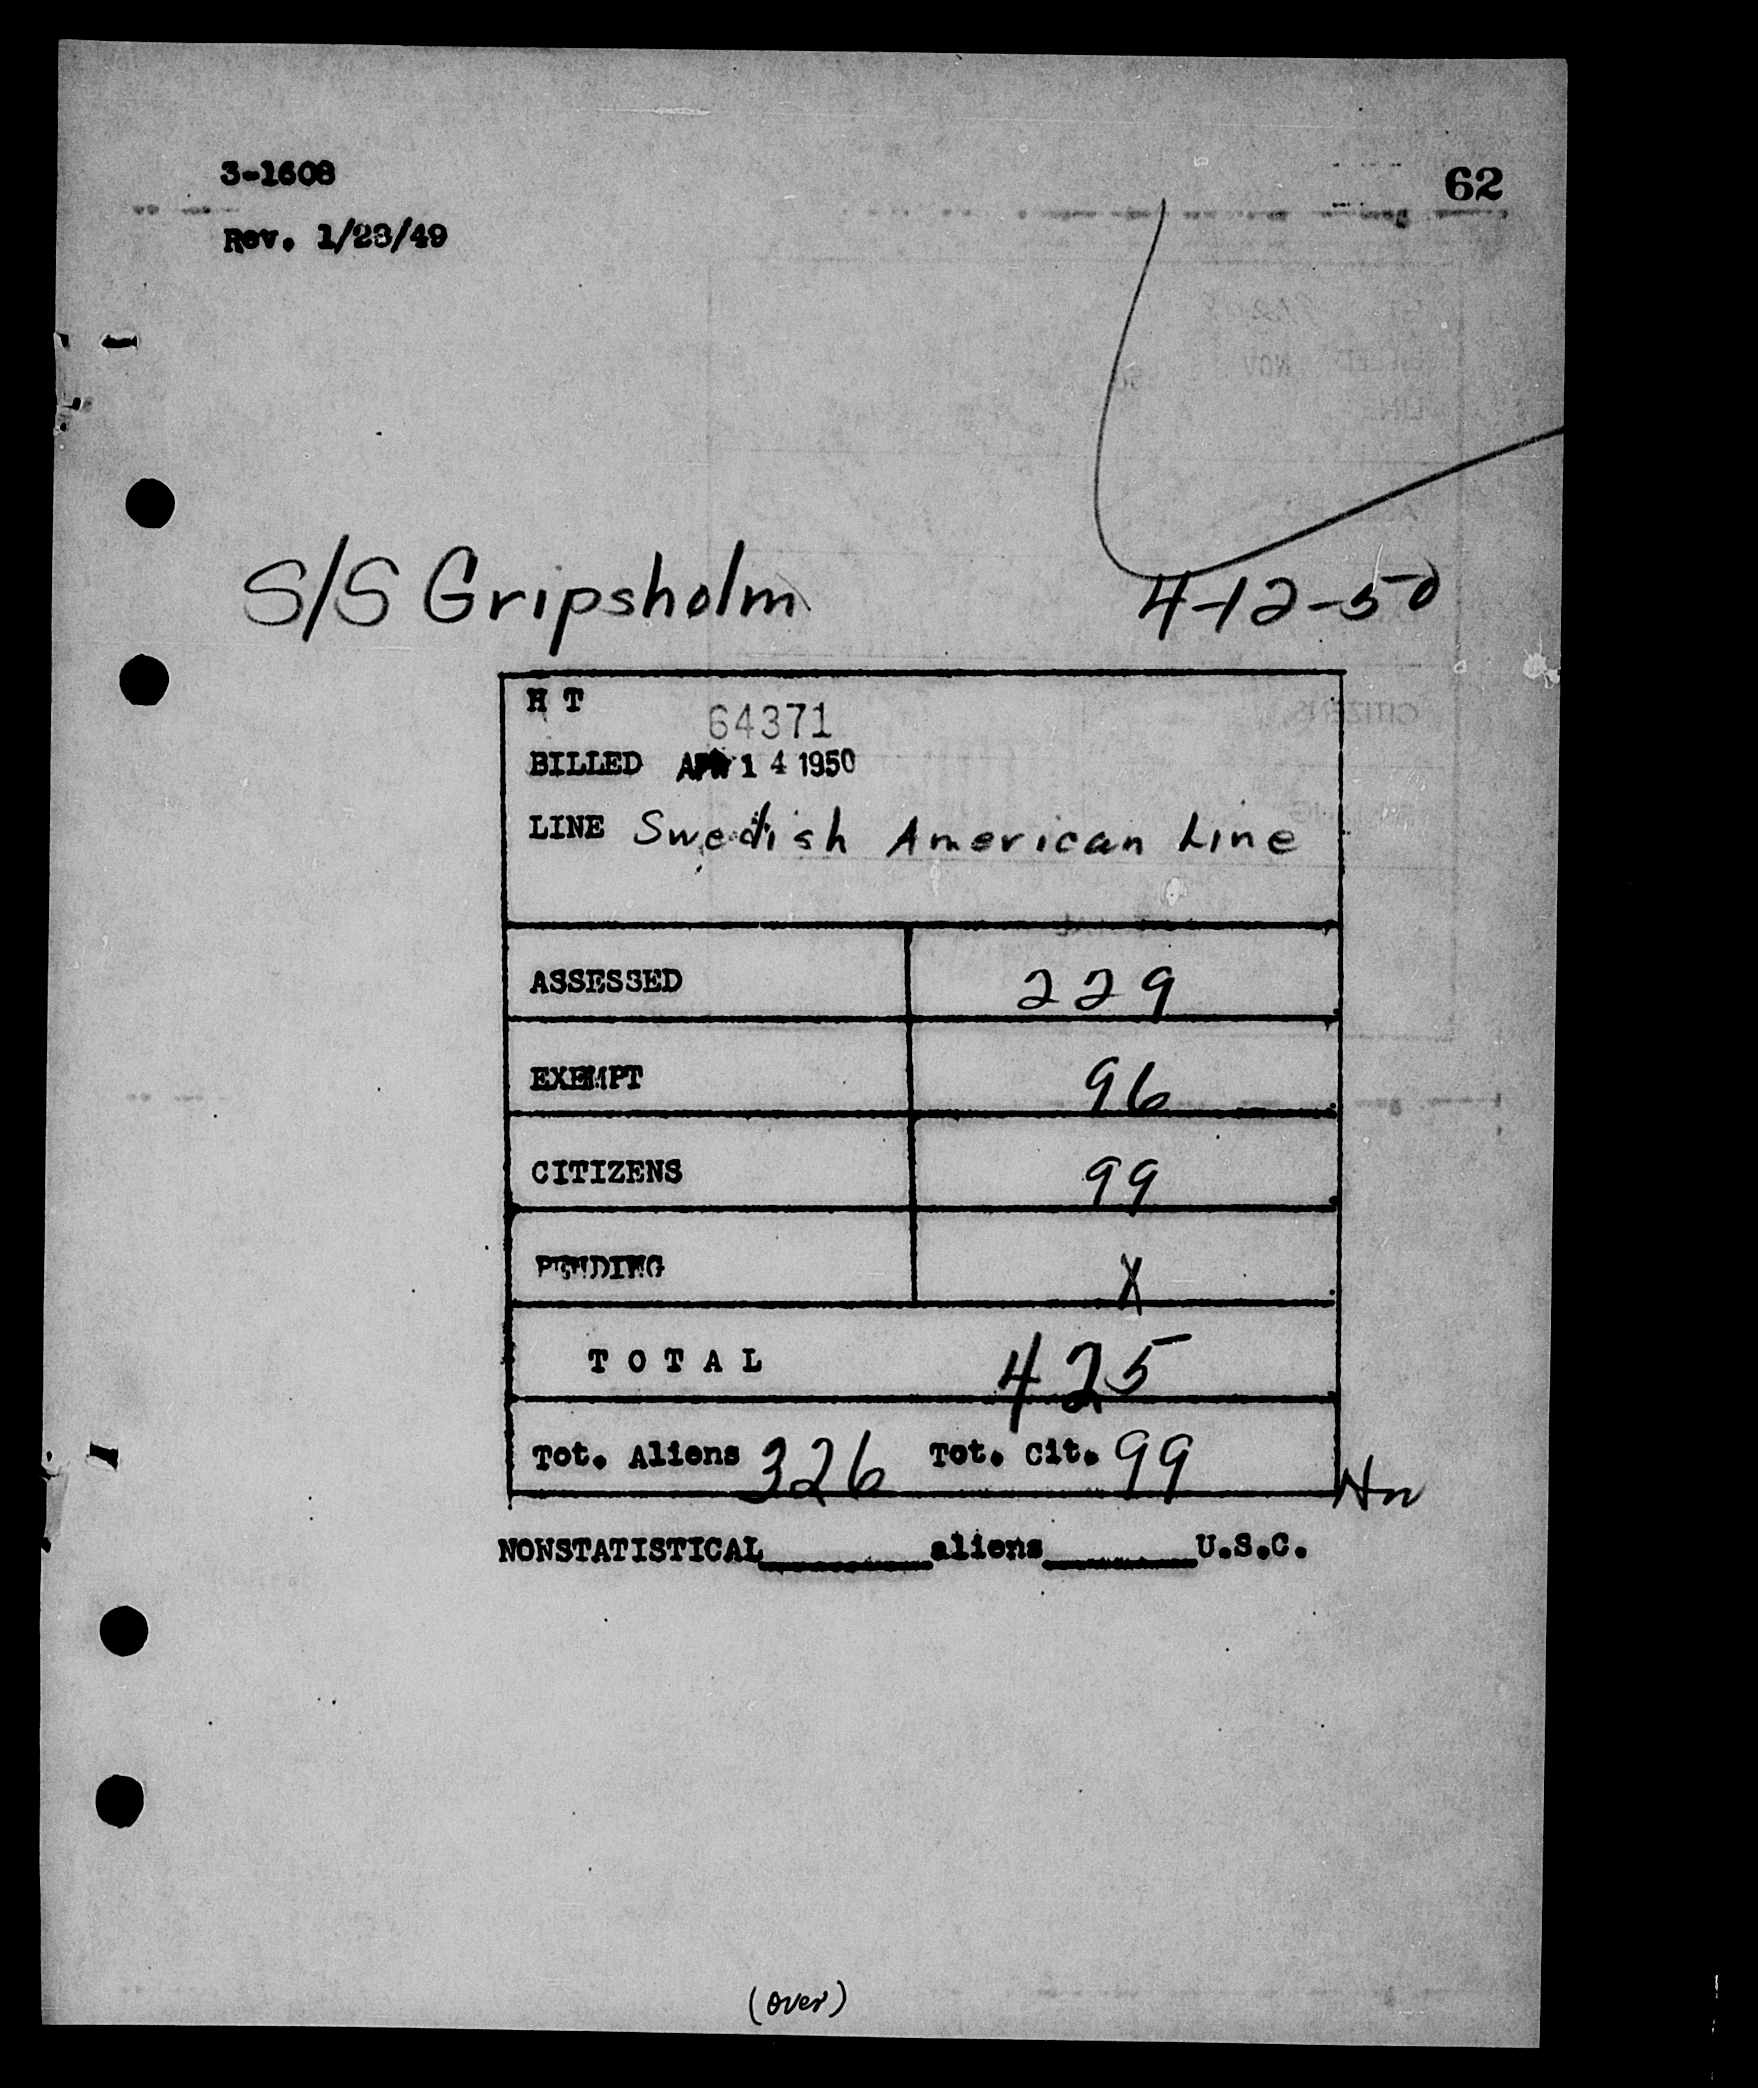 3-1608
62
Rev. 1/28/49
S/S Gripsholm
4-12-50
H T
64371
BILLED APR 14 1950
LINE Swedish American Line
ASSESSED 229
EXEMPT 96
CITIZENS 99
PENDING X
TOTAL 425
Tot. Aliens 326 Tot. Cit. 99
NONSTATISTICAL________aliens________U.S.C.
(over)